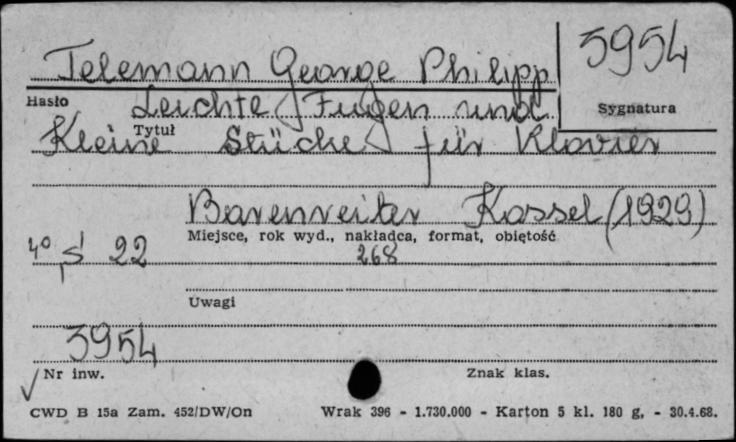 Telemann George Philipp 3954
Hasło Leichte Fugen und Sygnatura
Tytuł
Kleine Stücke für Klavier
Barenreiter Kassel (1929)
Miejsce, rok wyd., nakładca, format, objętość
4° s 22 268
Uwagi
3954
Nr inw. Znak klas.
CWD B 15a Zam. 452/DW/On Wrak 396 - 1.730.000 - Karton 5 kl. 180 g, - 30.4.68.